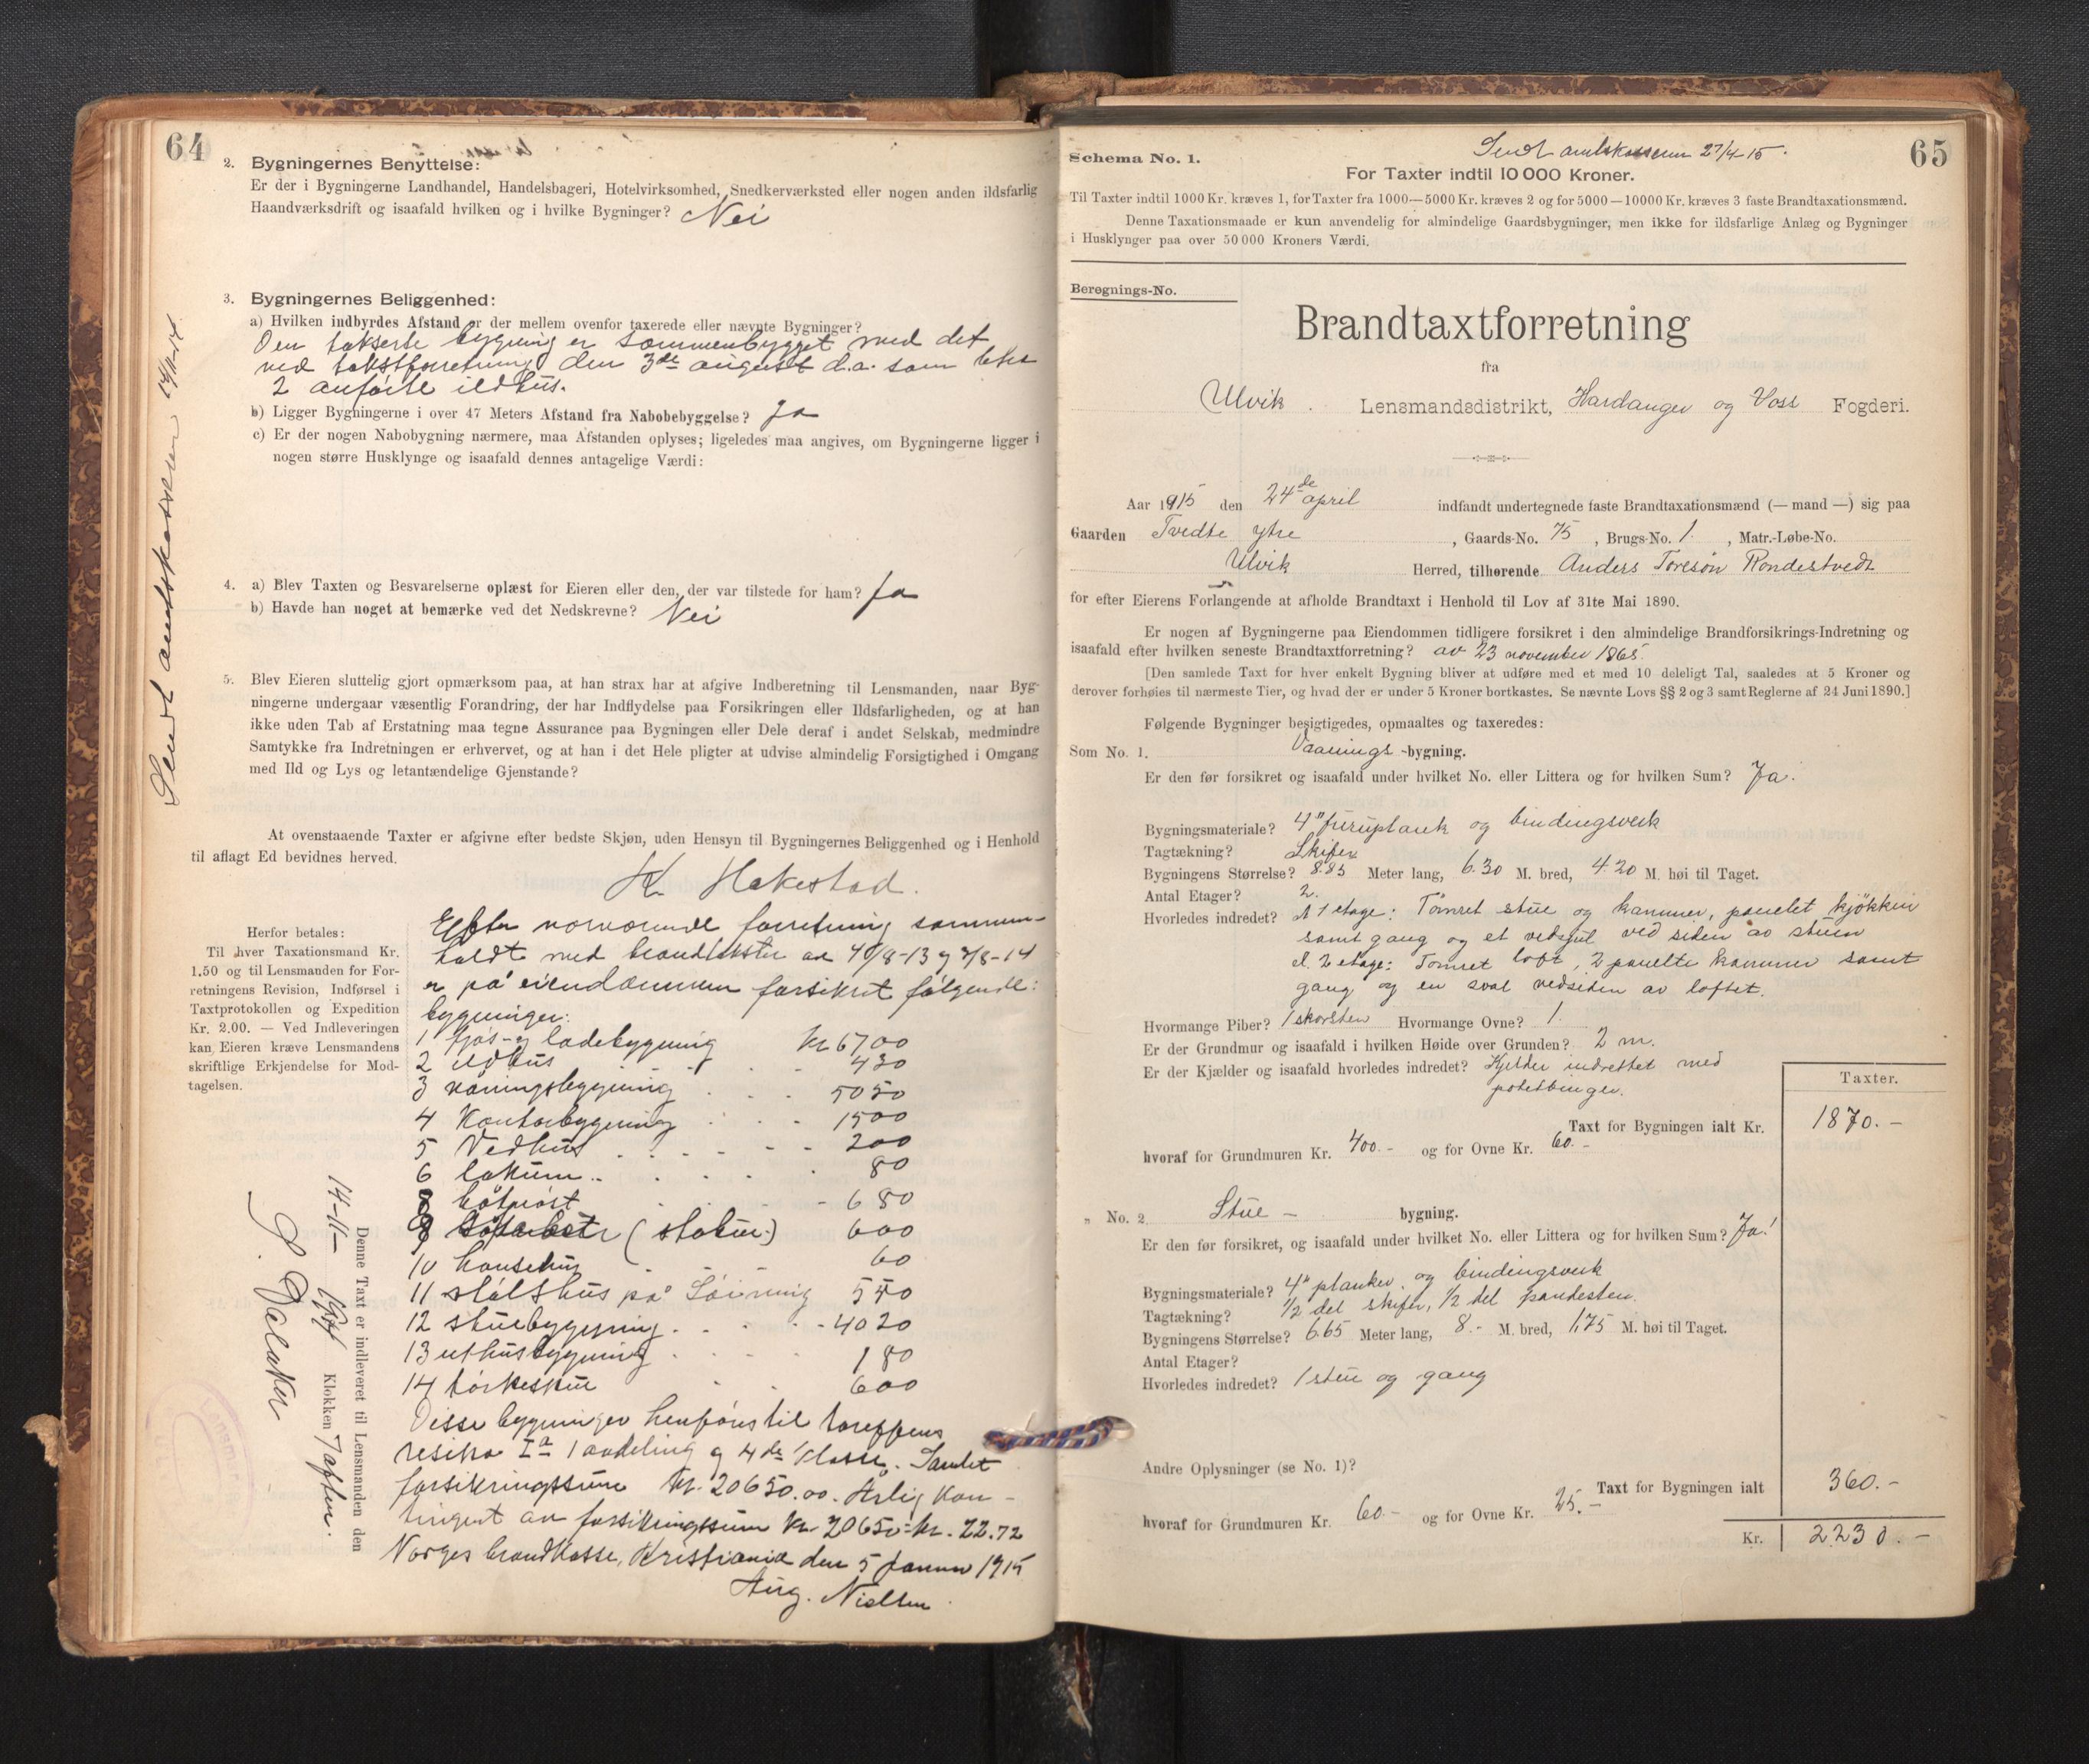 64
2. Bygningernes Benyttelse:
Er der i Bygningerne Landhandel, Handelsbageri, Hotelvirksomhed, Snedkerværksted eller nogen anden ildsfarlig
Haandværksdrift og isaafald hvilken og i hvilke Bygninger? Nei
3. Bygningernes Beliggenhed:
a) Hvilken indbyrdes Afstand er der mellem ovenfor taxerede eller nævnte Bygninger?
Den takserte bygning er sammenbygget med det
ved takstforretning den 3de august d.a. som
2 anførte ildhus.
b) Ligger Bygningerne i over 47 Meters Afstand fra Nabobebyggelse? Ja
c) Er der nogen Nabobygning nærmere, maa Afstanden oplyses; ligeledes maa angives, om Bygningerne ligger i
nogen større Husklynge og isaafald dennes antagelige Værdi:
4. a) Blev Taxten og Besvarelserne oplæst for Eieren eller den, der var tilstede for ham? Ja
b) Havde han noget at bemærke ved det Nedskrevne? Nei
5. Blev Eieren sluttelig gjort opmærksom paa, at han strax har at afgive Indberetning til Lensmanden, naar Byg-
ningerne undergaar væsentlig Forandring, der har Indflydelse paa Forsikringen eller Ildsfarligheden, og at han
ikke uden Tab af Erstatning maa tegne Assurance paa Bygningen eller Dele deraf i andet Selskab, medmindre
Samtykke fra Indretningen er erhvervet, og at han i det Hele pligter at udvise almindelig Forsigtighed i Omgang
med Ild og Lys og letantændelige Gjenstande?
At ovenstaaende Taxter er afgivne efter bedste Skjøn, uden Hensyn til Bygningernes Beliggenhed og i Henhold
til aflagt Ed bevidnes herved.
K. Hakestad.
Herfor betales:
Til hver Taxationsmand Kr.
1.50 og til Lensmanden for For-
retningens Revision, Indførsel i
Taxtprotokollen og Expedition
Kr. 2.00. — Ved Indleveringen
kan Eieren kræve Lensmandens
skriftlige Erkjendelse for Mod-
tagelsen.
Efter nærværende forretning sammen-
holdt med brandtakster av /8-13 og 3/8-14
er på eiendommen forsikret følgende
bygninger:
1 fjøs- og ladebygning kr 6700
2 ildhus 430
3 våningsbygning 5050
4 Kontorbygning 1500
5 Vedhus 200
6 lokum 80
8 båtnøst 680
9 (stabur) 600
10 hønsehus 60
11 stølshus på 550
12 stuebygning 4020
13 uthusbygning 180
14 tørkeskur 600
Disse bygninger henføres til tareffens
resiko Ia 1 avdeling og 4de klasse. Samlet
forsikringssum kr. 20650.00. Årlig kon-
tingent av forsikringssum kr 20650 = kr. 22.72
Norges brandkasse, Kristiania den 5 Januar 1915
Aug. Nielsen
Sendt amtskassereren
Denne Taxt er indleveret til Lensmanden den
14-11- 1914 Klokken 7 aften.
65
Schema No. 1.
Sendt amtskassereren 27/4-15.
For Taxter indtil 10 000 Kroner.
Til Taxter indtil 1000 Kr. kræves 1, for Taxter fra 1000—5000 Kr. kræves 2 og for 5000—10000 Kr. kræves 3 faste Brandtaxationsmænd.
Denne Taxationsmaade er kun anvendelig for almindelige Gaardsbygninger, men ikke for ildsfarlige Anlæg og Bygninger
i Husklynger paa over 50 000 Kroners Værdi.
Beregnings-No.
Brandtaxtforretning
fra
Ulvik Lensmandsdistrikt, Hardanger og Voss Fogderi.
Aar 1915 den 24de april indfandt undertegnede faste Brandtaxationsmænd (— mand —) sig paa
Gaarden Tvedte ytre, Gaards-No. 75, Brugs-No. 1, Matr.-Løbe-No.
Ulvik Herred, tilhørende Anders Toreson Rondestvedt
for efter Eierens Forlangende at afholde Brandtaxt i Henhold til Lov af 31te Mai 1890.
Er nogen af Bygningerne paa Eiendommen tidligere forsikret i den almindelige Brandforsikrings-Indretning og
isaafald efter hvilken seneste Brandtaxtforretning? av 23 november 1865.
[Den samlede Taxt for hver enkelt Bygning bliver at udføre med et med 10 deleligt Tal, saaledes at 5 Kroner og
derover forhøies til nærmeste Tier, og hvad der er under 5 Kroner bortkastes. Se nævnte Lovs §§ 2 og 3 samt Reglerne af 24 Juni 1890.]
Følgende Bygninger besigtigedes, opmaaltes og taxeredes:
Som No. 1. Vaanings -bygning.
Er den før forsikret og isaafald under hvilket No. eller Littera og for hvilken Sum? Ja.
Bygningsmateriale? 4" furuplank og bindingsverk
Tagtækning? Skifer
Bygningens Størrelse? 8.85 Meter lang, 6.30 M. bred, 4.20 M. høi til Taget.
Antal Etager? 2.
Hvorledes indredet? 1 etage: Tømret stue og kammer, panelet kjøkken
samt gang og et vedskjul ved siden av stuen
2 etage: Tømret loft, 2 panelte kammer samt
gang og en sval vedsiden av loftet.
Hvormange Piber? 1 skorsten Hvormange Ovne? 1.
Er der Grundmur og isaafald i hvilken Høide over Grunden? 2 m.
Er der Kjælder og isaafald hvorledes indredet? Kjelder indrettet med
potetbinger.
Taxter.
Taxt for Bygningen ialt Kr. 1870.-
hvoraf for Grundmuren Kr. 400.- og for Ovne Kr. 60.-
" No. 2 Stue - bygning.
Er den før forsikret, og isaafald under hvilket No. eller Littera og for hvilken Sum? Ja!
Bygningsmateriale? 4" planker og bindingsverk
Tagtækning? 1/2 del skifer, 1/2 del pandesten.
Bygningens Størrelse? 6.65 Meter lang, 8.- M. bred, 1,75 M. høi til Taget.
Antal Etager?
Hvorledes indredet? 1 stue og gang
Andre Oplysninger (se No. 1)?
Taxt for Bygningen ialt 360.-
hvoraf for Grundmuren Kr. 60.- og for Ovne Kr. 25.-
Kr. 2230.-